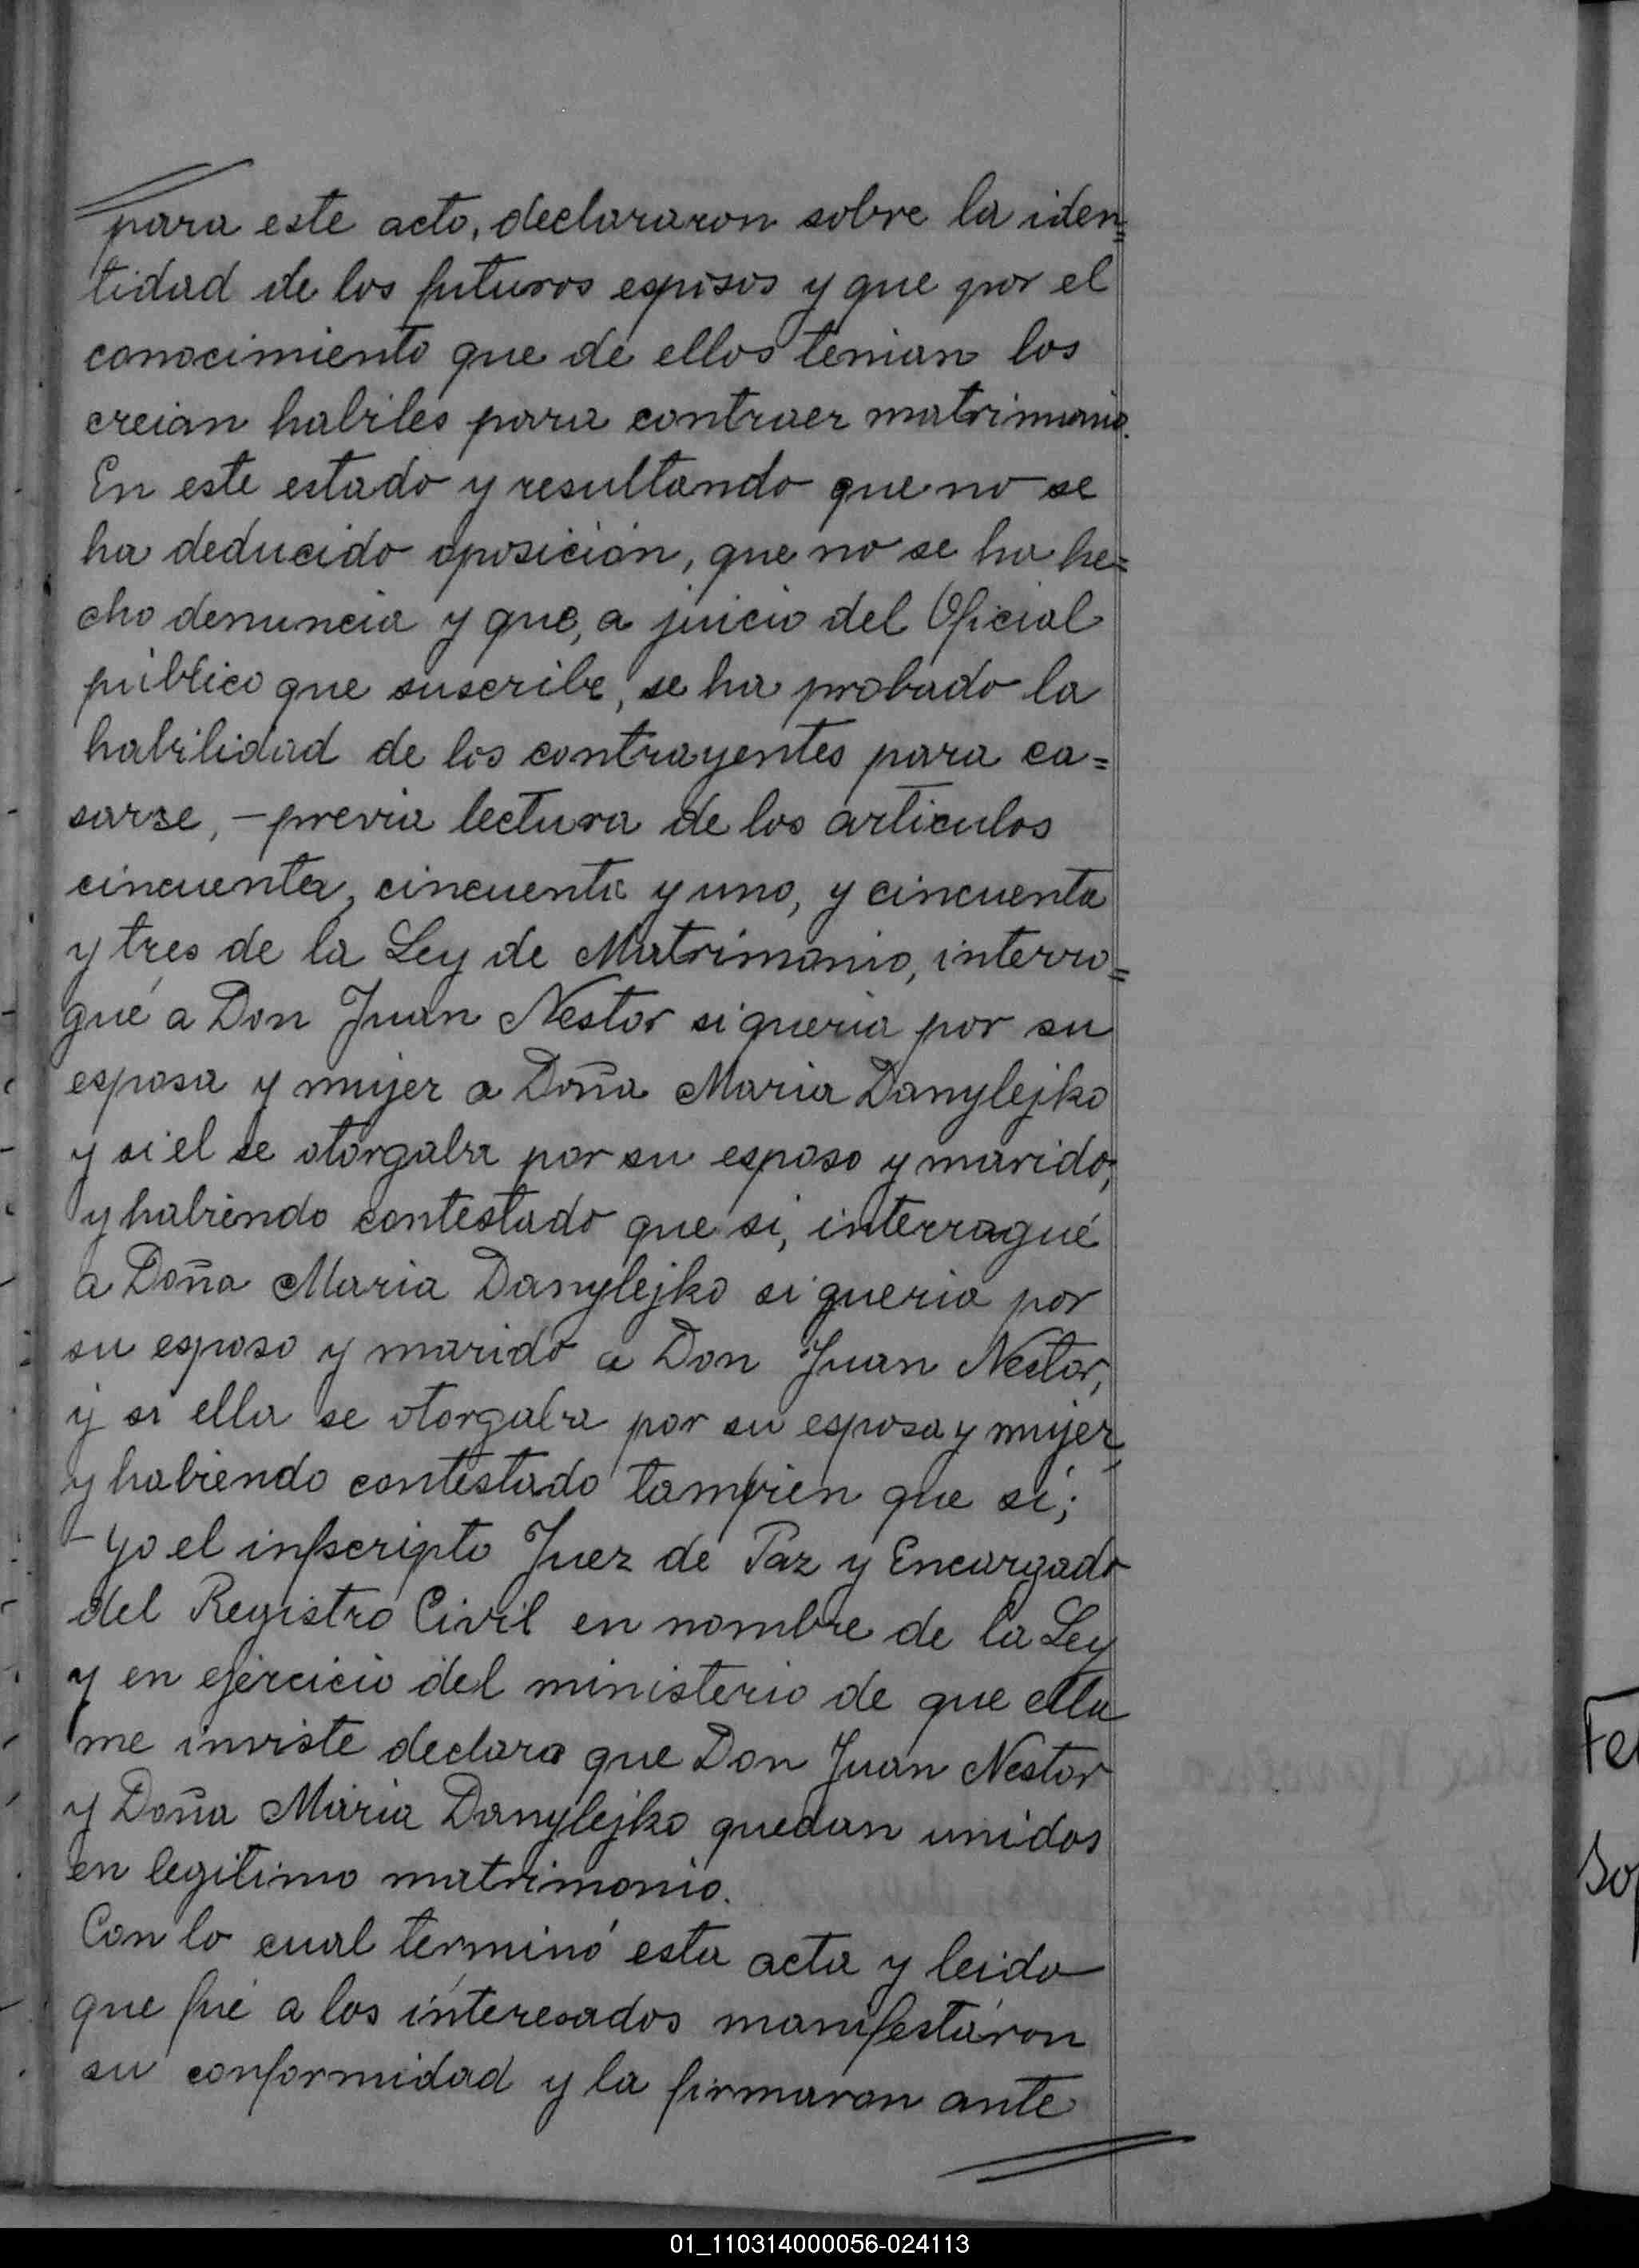 para este acto, declararon sobre la iden=
tidad de los futuros esposos y que por el
conocimiento que de ellos tenian los
creian habiles para contraer matrimonio.
En este estado y resultando que no se
ha deducido oposición, que no se ha he=
cho denuncia y que, a juicio del Oficial
público que suscribe, se ha probado la
habilidad de los contrayentes para ca=
sarse, - previa lectura de los articulos
cincuenta, cincuenta y uno, y cincuenta
y tres de la Ley de Matrimonio, interro=
gué a Don Juan Nestor si queria por su
esposa y mujer a Doña Maria Danylejko
y si el se otorgaba por su esposo y marido,
y habiendo contestado que si, interragué
a Doña Maria Danylejko si queria por
su esposo y marido a Don Juan Nestor,
y si ella se otorgaba por su esposa y mujer,
y habiendo contestado tambien que si;
- Yo el infscripto Juez de Paz y Encargado
del Registro Civil en nombre de la Ley
y en ejercicio del ministerio de que ella
me inviste declaro que Don Juan Nestor
y Doña Maria Danylejko quedan unidos
en legitimo matrimonio.
Con lo cual terminó esta acta y leido
que fué a los interesados manifestáron
su conformidad y la firmaron ante
Fe
So
01_110314000056-024113